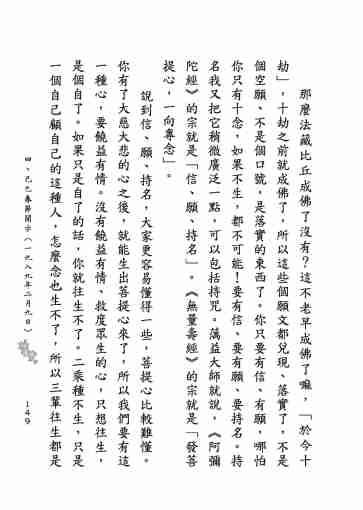 那麼法藏比丘成佛了沒有？這不老早成佛了嘛，「於今十
劫」，十劫之前就成佛了，所以這些個願文都兌現、落實了，不是
個空願、不是個口號，是落實的東西了。你只要有信、有願，哪怕
你只有十念，如果不生，都不可能！要有信、要有願、要持名。持
名我又把它稍微廣泛一點，可以包括持咒。蕅益大師就說，《阿彌
陀經》的宗就是「信、願、持名」。《無量壽經》的宗就是「發菩
提心，一向專念」。
說到信、願、持名，大家更容易懂得一些。菩提心比較難懂。
你有了大慈大悲的心之後，就能生出菩提心來了，所以我們要有這
一種心，要饒益有情。沒有饒益有情、救度眾生的心，只想往生，
是個自了。如果只是自了的話，你就往生不了。二乘種不生，只是
一個自己顧自己的這種人，怎麼念也生不了，所以三輩往生都是
四、己巳春節開示（一九八九年二月九日）
149